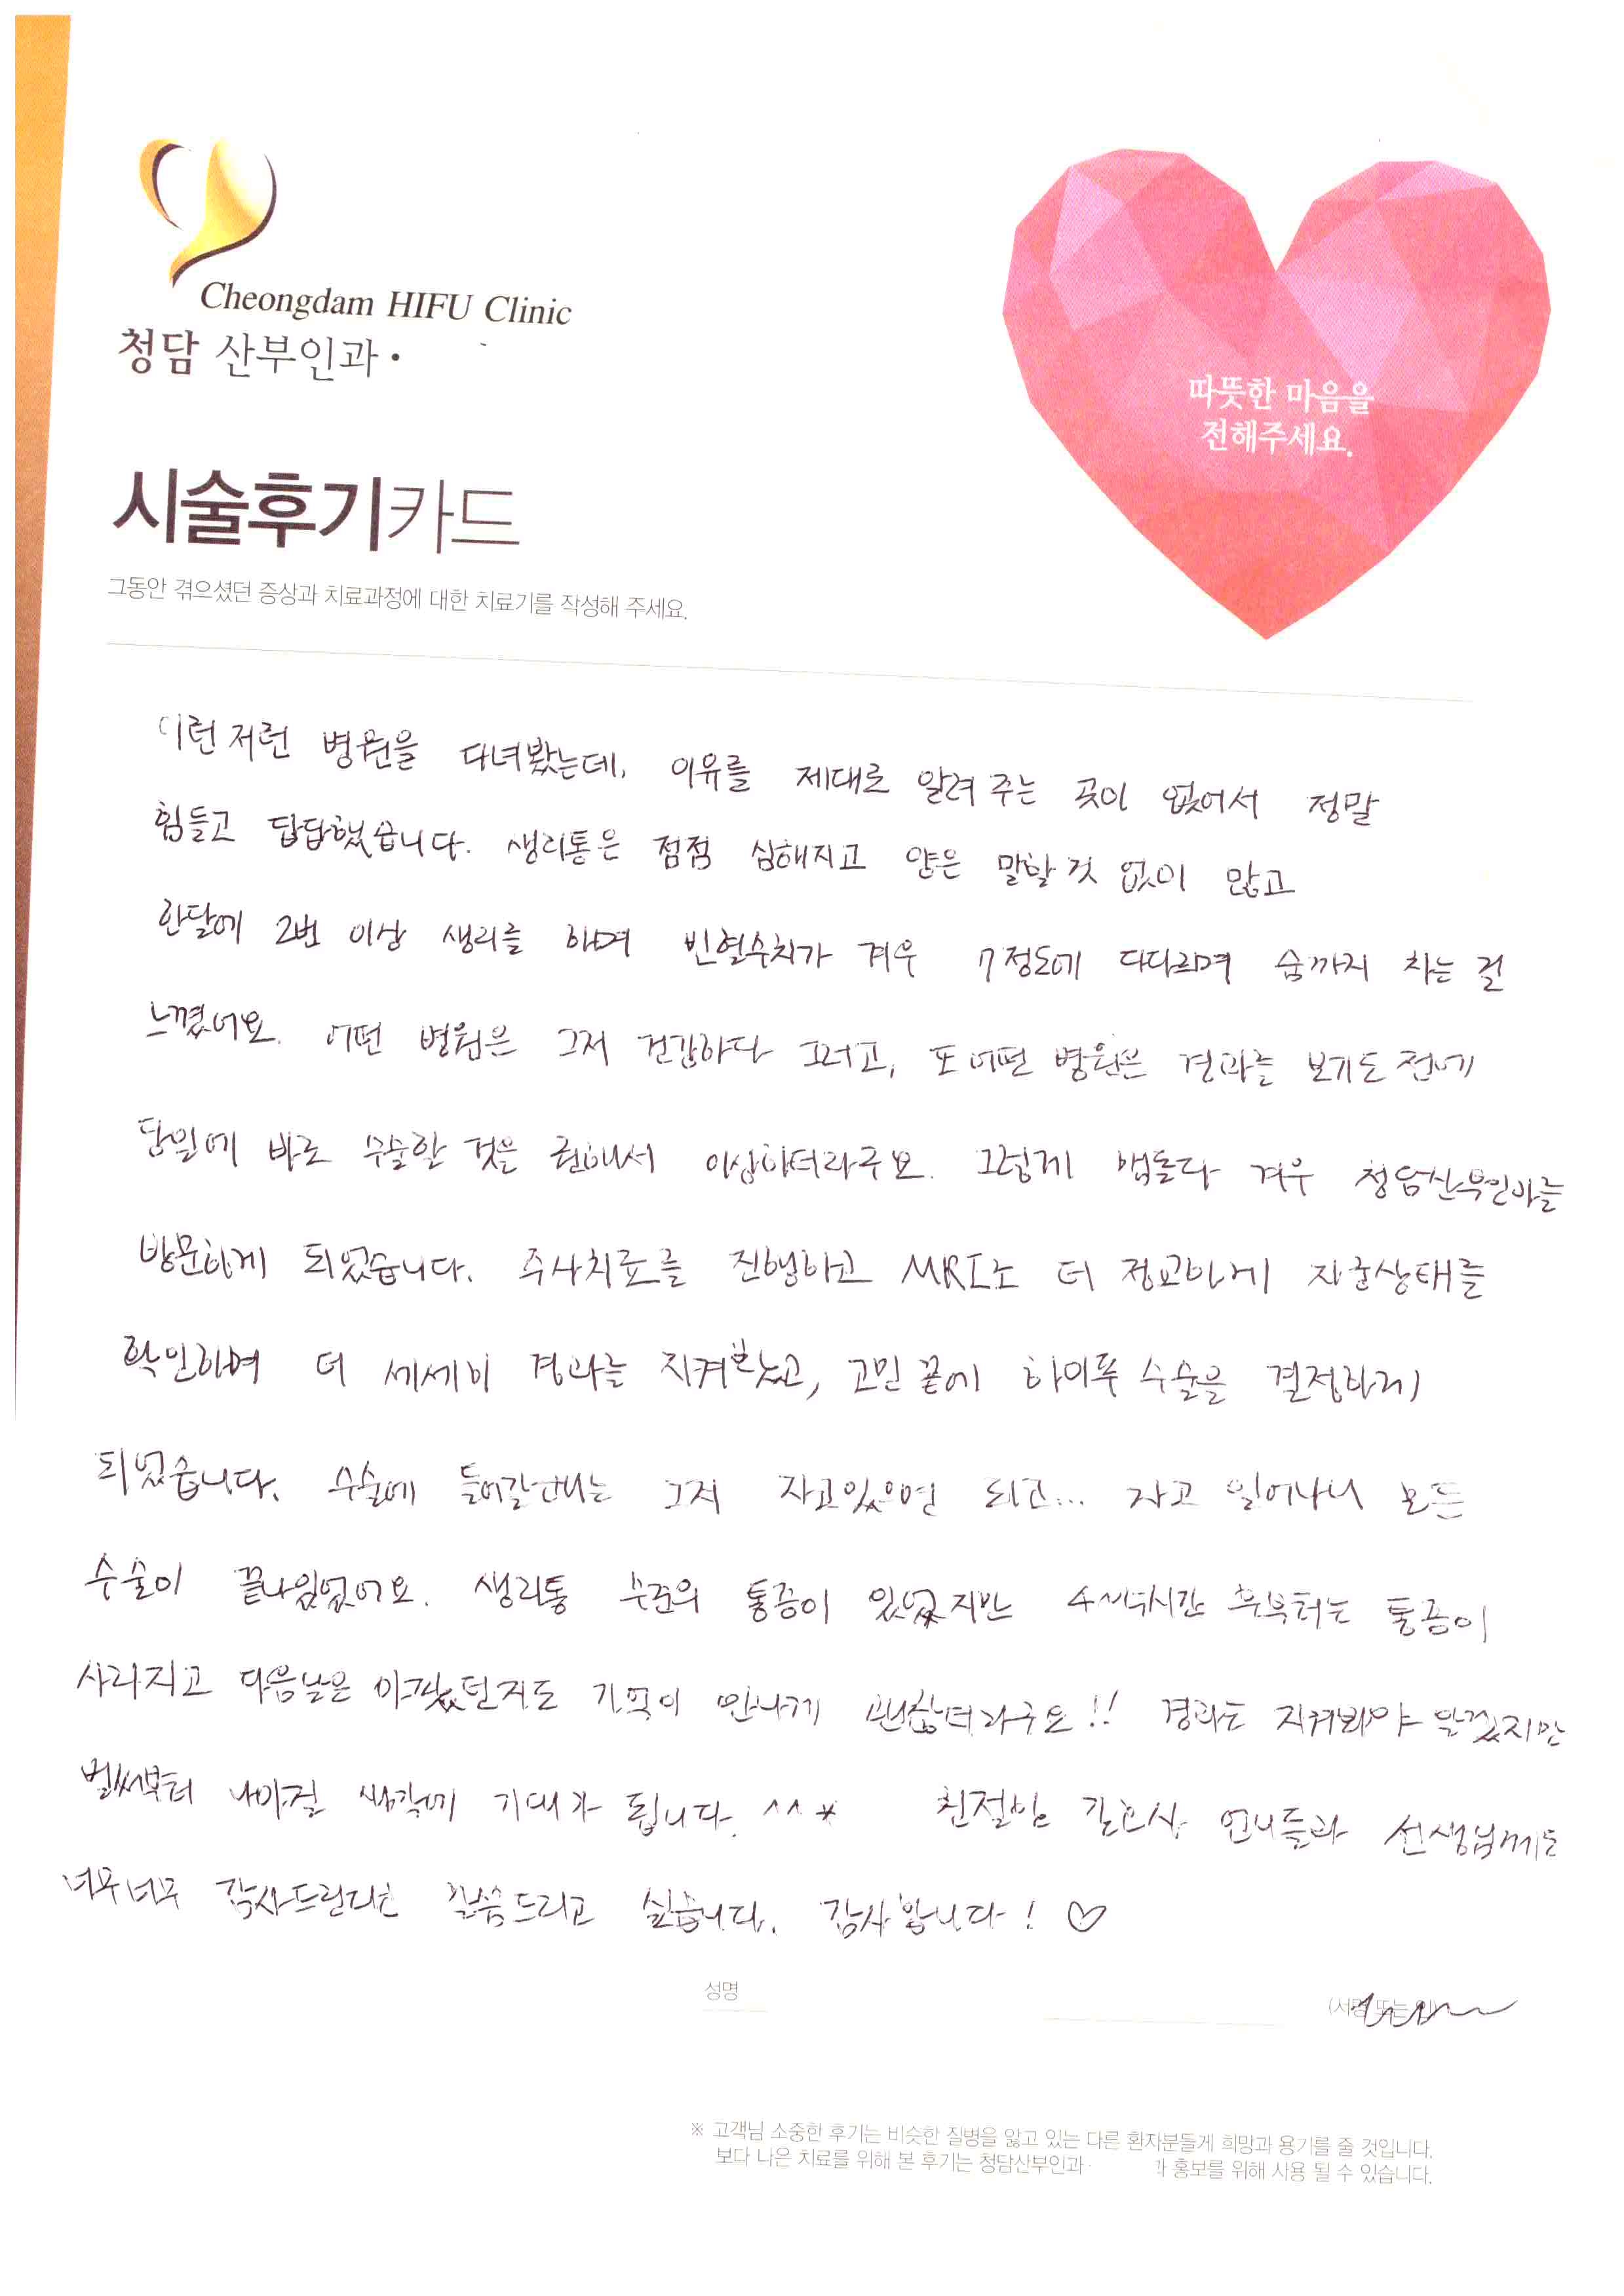 Cheongdam HIFU Clinic
청담 산부인과·
따뜻한 마음을
전해주세요.
시술후기카드
그동안 겪으셨던 증상과 치료과정에 대한 치료기를 작성해 주세요.
이런 저런 병원을 다녀봤는데, 이유를 제대로 알려 주는 곳이 없어서 정말
힘들고 답답했습니다. 생리통은 점점 심해지고 양은 말할 것 없이 많고
한달에 2번 이상 생리를 하며 빈혈수치가 겨우 7정도에 다다르며 숨까지 차는 걸
느꼈어요. 어떤 병원은 그저 건강하다 그러고, 또 어떤 병원은 결과를 보기도 전에
당일에 바로 수술할 것을 권해서 이상하더라구요. 그렇게 맴돌다 겨우 청담산부인과를
방문하게 되었습니다. 주사치료를 진행하고 MRI로 더 정교하게 자궁상태를
확인하며 더 세세히 경과를 지켜봤고, 고민 끝에 하이푸 수술을 결정하게
되었습니다. 수술에 들어갈때는 그저 자고있으면 되고... 자고 일어나니 모든
수술이 끝나있었어요. 생리통 수준의 통증이 있었지만 4시간 후부터는 통증이
사라지고 다음날은 아팠던지도 기억이 안나게 괜찮더라구요!! 경과는 지켜봐야 알겠지만
벌써부터 나아질 생각에 기대가 됩니다. ^^* 친절한 간호사 언니들과 선생님께도
너무너무 감사드린다고 말씀드리고 싶습니다. 감사합니다! ♡
성명
(서명 또는 인)
※ 고객님 소중한 후기는 비슷한 질병을 앓고 있는 다른 환자분들게 희망과 용기를 줄 것입니다.
보다 나은 치료를 위해 본 후기는 청담산부인과 홍보를 위해 사용 될 수 있습니다.